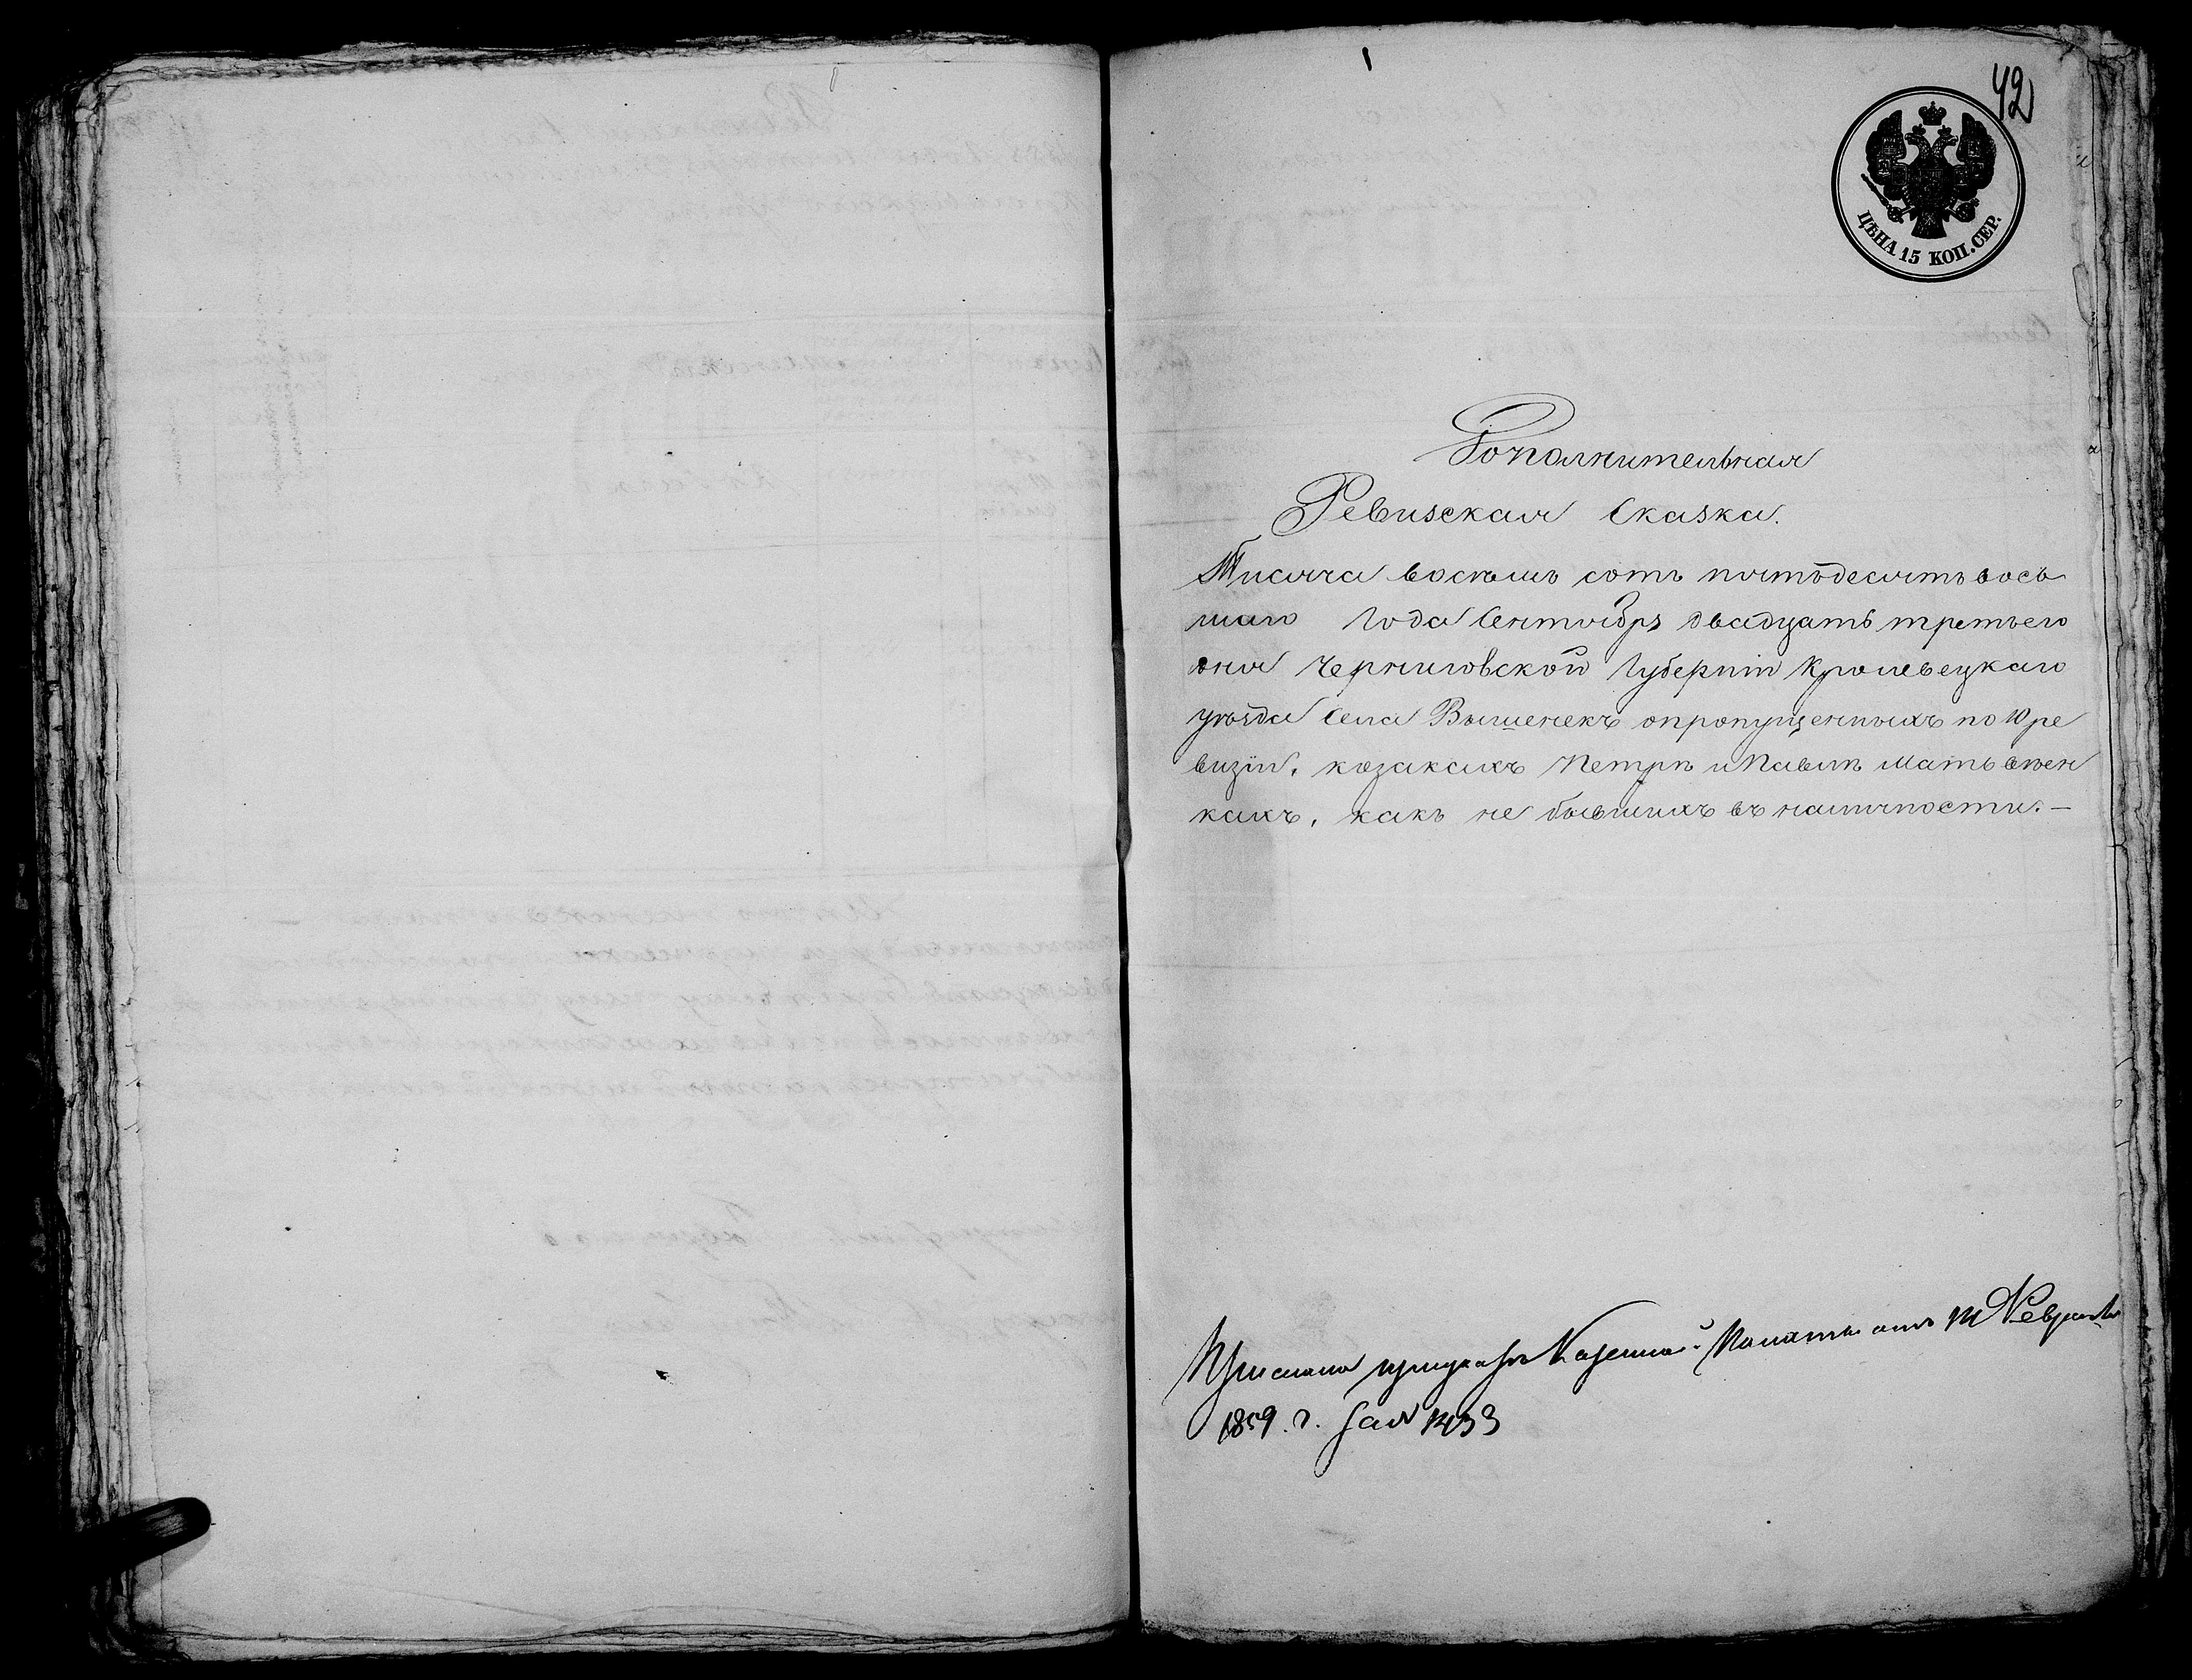 42
ЦѢНА 15 КОП. СЕР.
Дополнительная
Ревизская Сказка.
Тисяча восемь сотъ пятьдесятъ вось
маго Года Сентября двадцать третьего
дня Черниговской Губерніи Кролевецкаго
уѣзда Села Вишенекъ опропущенныхъ по 10 ре
визіи, козакахъ Петрѣ и Павлѣ Матвѣен
кахъ, какъ не бывшихъ въ наличности.—
Прислана при указѣ Казенной Палаты отъ Февраля
1859. г. за №